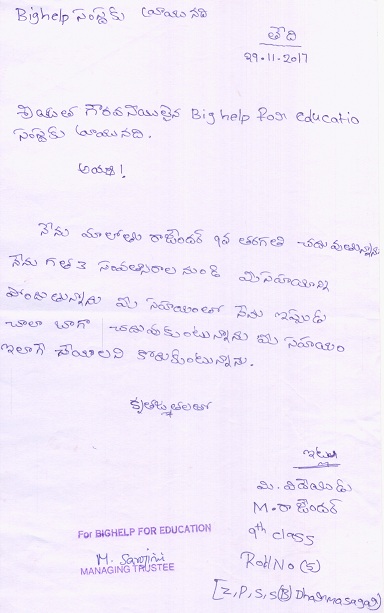 Bighelp సంస్థకు వ్రాయునది
తేది
29.11.2017
గౌరవనీయులైన Big help for educatio
సంస్థకు వ్రాయునది.
అయ్యా!
నేను మాలోతు రాజేందర్ 9వ తరగతి చదువుతున్నాను
నేను గత 3 సంవత్సరాల నుండి మీ సహాయాన్ని
పొందుతున్నాను మీ సహాయంతో నేను ఇప్పుడు
చాలా బాగా చదువుకుంటున్నాను మీ సహాయం
ఇలాగే చేయాలని కోరుకుంటున్నాను.
కృతజ్ఞతలతో
ఇట్లు
మీ విధేయుడు
M. రాజేందర్
9th class
Roll No (5)
[Z, P, S, S (B) Dharmasagar]
For BIGHELP FOR EDUCATION
M. Sarojini
MANAGING TRUSTEE